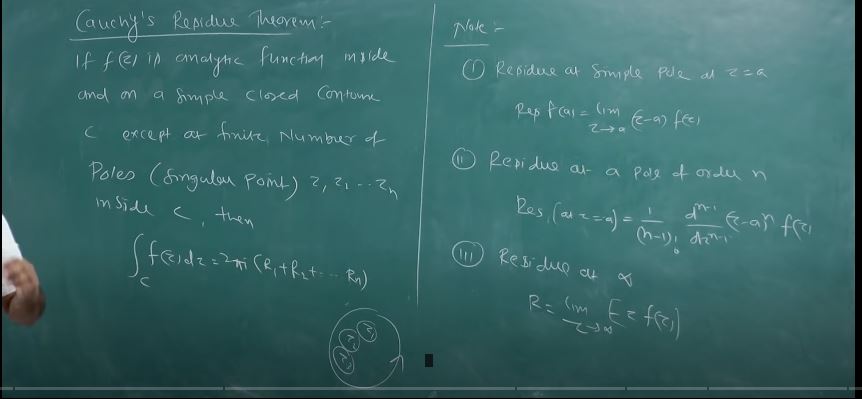 Cauchy's Residue Theorem:-
If f(z) is analytic function inside
and on a simple closed Contour
C except at finite Number of
Poles (Singular point) z, z₁ ... zₙ
inside C, then
∫_C f(z)dz = 2πi (R₁+R₂+... Rₙ)
Note:-
(i) Residue at simple Pole at z=a
Res f(a) = lim_{z→a} (z-a) f(z)
(ii) Residue at a pole of order n
Res. (at z=a) = 1/(n-1)! d^{n-1}/dz^{n-1} (z-a)ⁿ f(z)
(iii) Residue at ∞
R = lim_{z→∞} [-z f(z)]